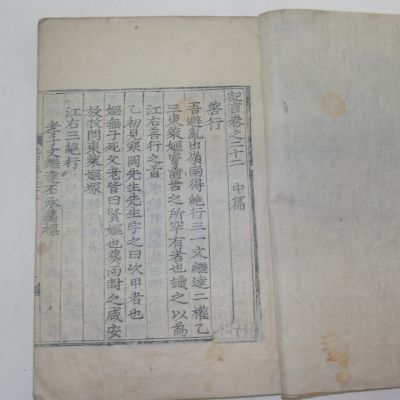 記言卷之二十二 中篇
善行
吾避亂出嶺南得絶行三一文繼達二權乙
三東萊嫗皆前古之所罕有者也識之以爲
江右善行之首
乙初見寒岡先生先生字之曰次甲者也
嫗無子死父老皆曰賢嫗也葬而封之咸安
放牧問東萊嫗塚
江右三絶行
孝子文繼達丕承墓標